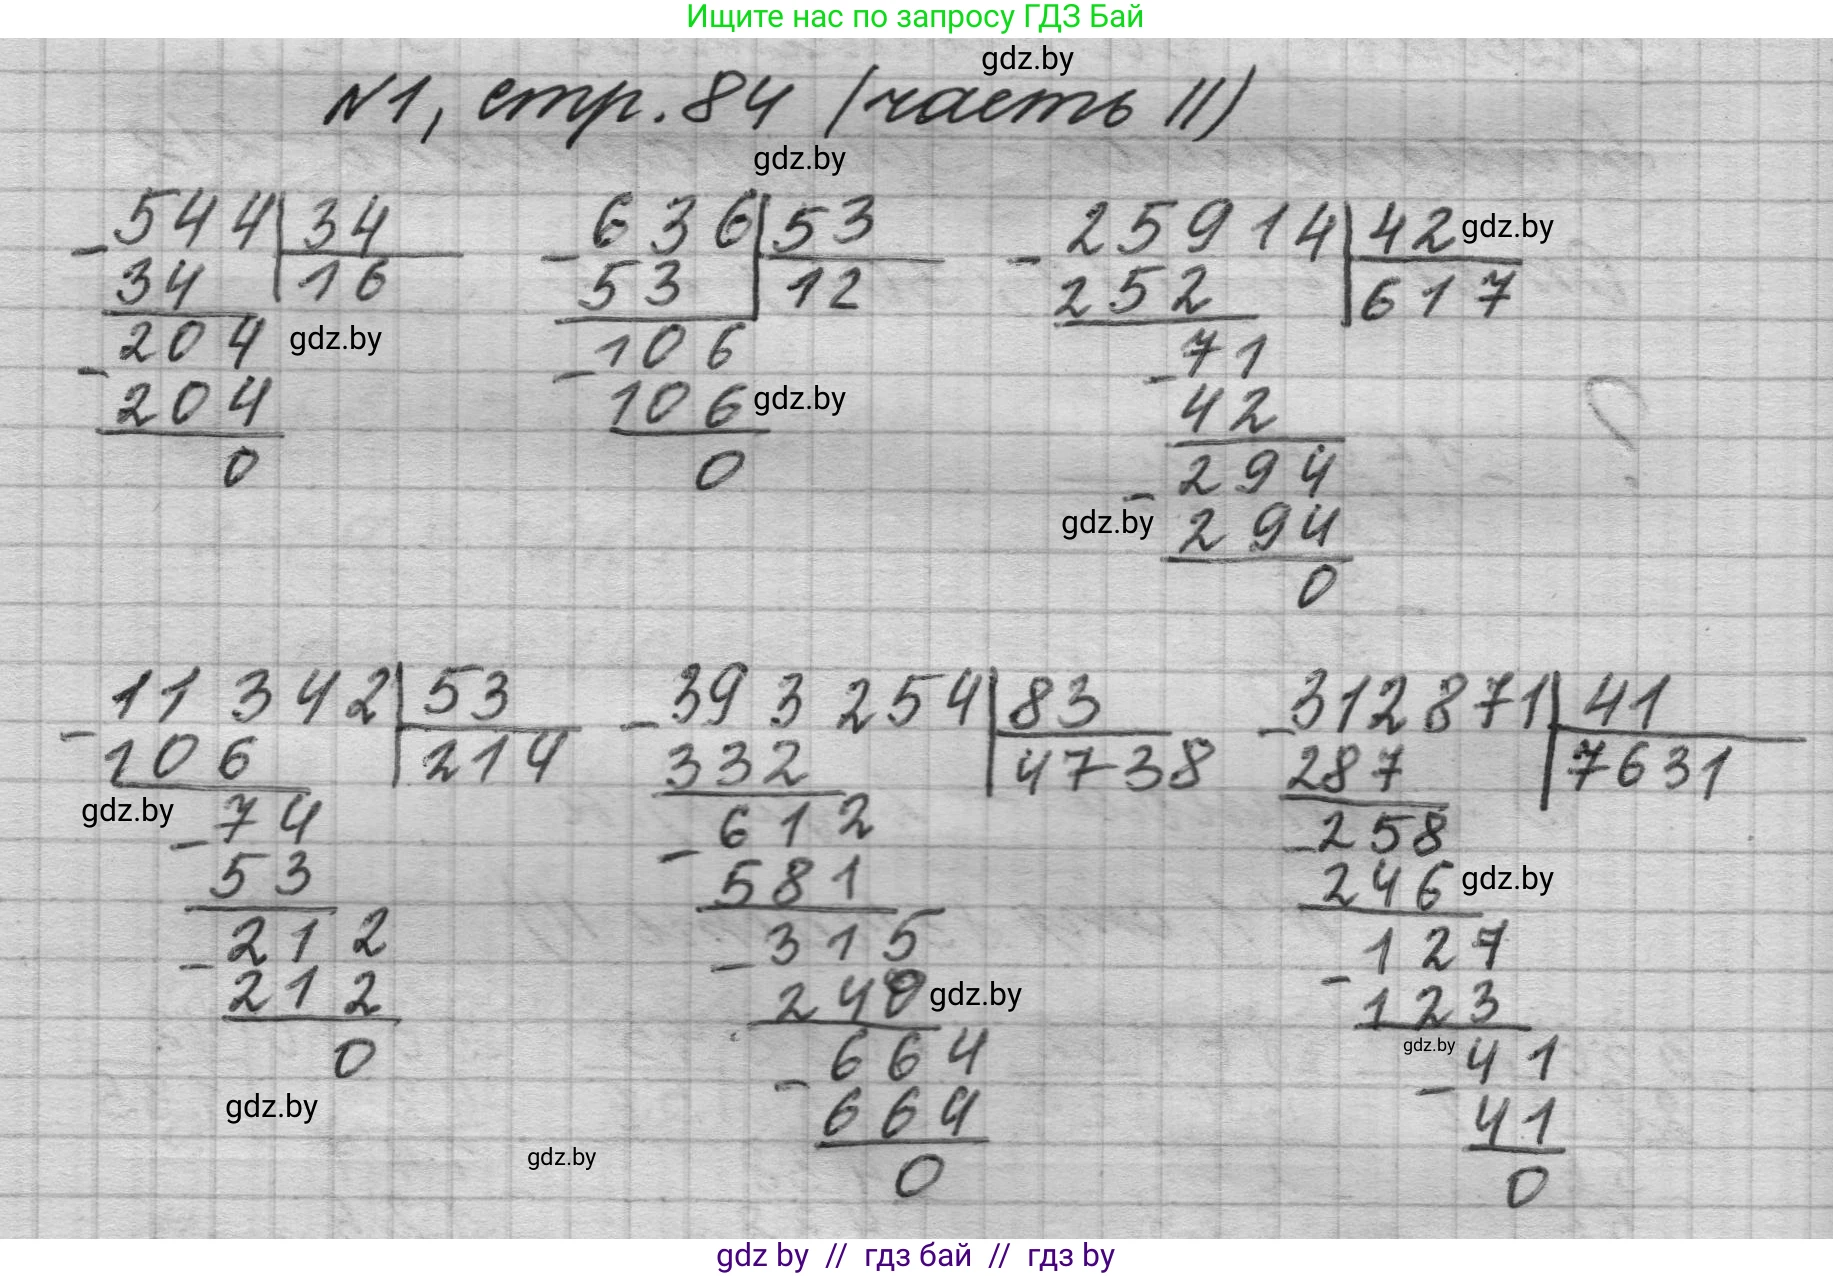 Ищите нас по запросу ГДЗ Бай
gdz.by
№1, стр. 84 (часть II)
gdz.by
544 34
- 34 16
204 gdz.by
- 204
0
636 53
- 53 12
106
- 106 gdz.by
0
25914 42 gdz.by
- 252 617
71
- 42
294
- gdz.by 294
0
11 342 53
- 106 214
gdz.by 74
- 53
212
- 212
0
gdz.by
393 254 83
- 332 4738
612
- 581
315
- 240 gdz.by
664
- 664
0
gdz.by
312871 41
- 287 7631
258
- 246 gdz.by
127
- 123
gdz.by 41
- 41
0
gdz by // гдз бай // гдз by